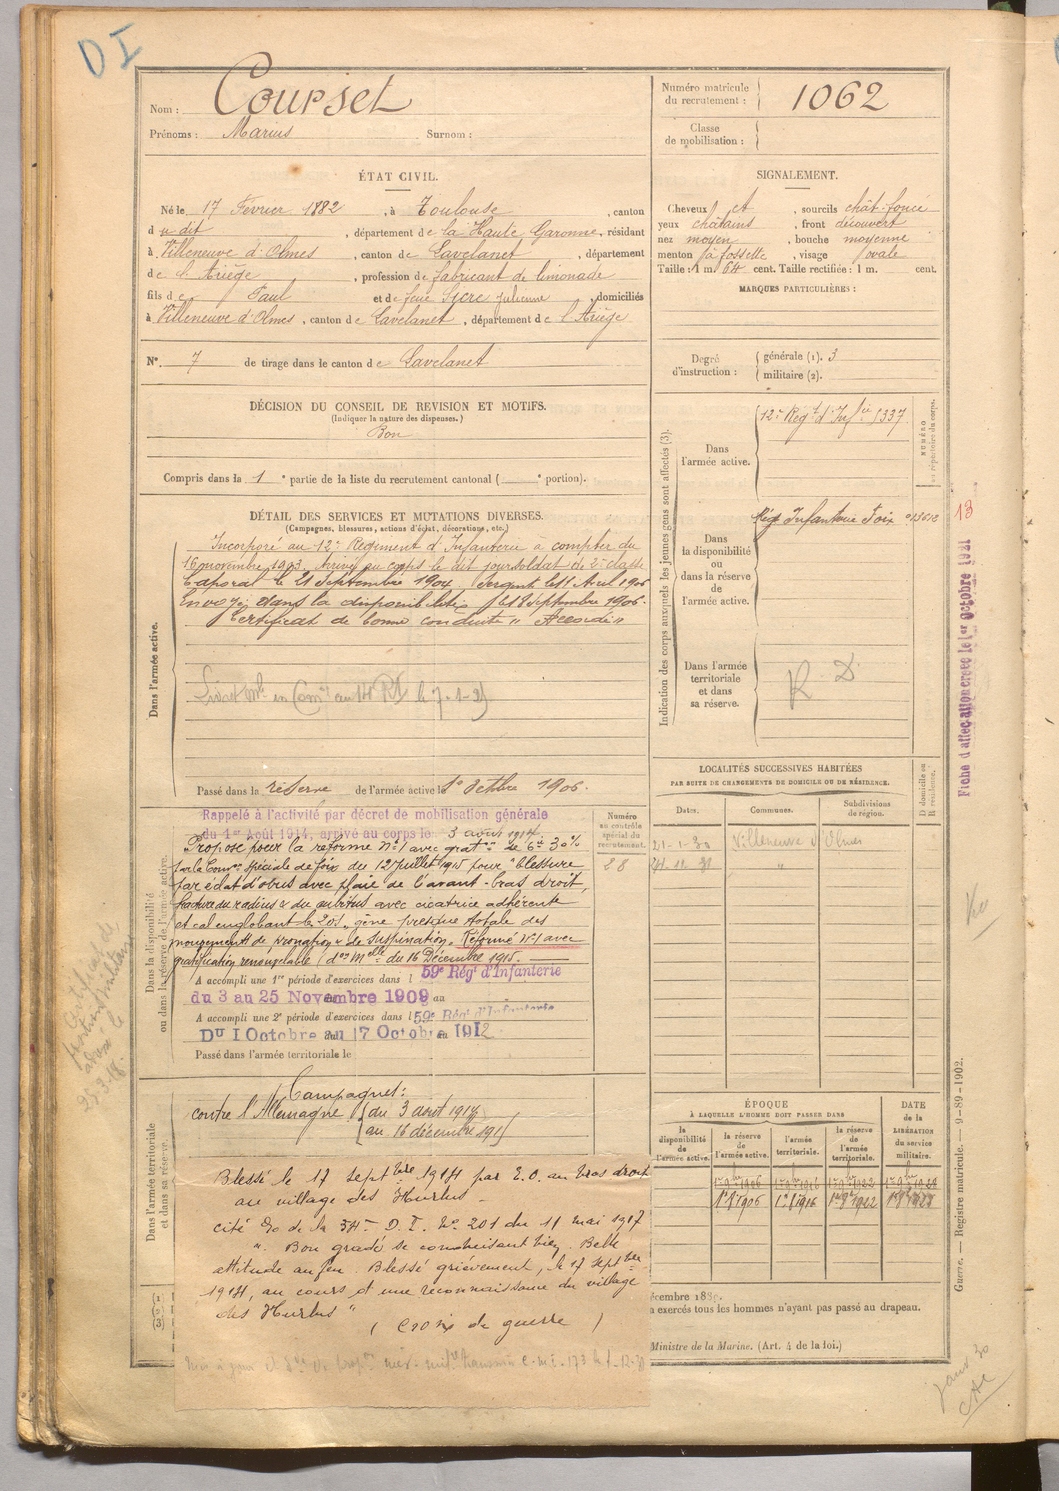 D I
Nom : Courset
Prénoms : Marius Surnom :
Numéro matricule
du recrutement : 1062
Classe
de mobilisation :
ÉTAT CIVIL.
Né le 17 Fevrier 1882, à Toulouse, canton
du dit, département de la Haute Garonne, résidant
à Villeneuve d'Olmes, canton de Lavelanet, département
de l'Ariège, profession de fabricant de limonade
fils de Paul et de feue Sicre Julienne, domiciliés
à Villeneuve d'Olmes, canton de Lavelanet, département de l'Ariège
N° 7 de tirage dans le canton de Lavelanet
SIGNALEMENT.
Cheveux et, sourcils chât-foncé
yeux châtains, front découvert
nez moyen, bouche moyenne
menton à fossette, visage ovale
Taille : 1 m. 64 cent. Taille rectifiée : 1 m. cent.
MARQUES PARTICULIÈRES :
Degré
d'instruction :
générale (1). 3
militaire (2).
DÉCISION DU CONSEIL DE REVISION ET MOTIFS.
(Indiquer la nature des dispenses.)
Bon
Compris dans la 1e partie de la liste du recrutement cantonal ( e portion).
DÉTAIL DES SERVICES ET MUTATIONS DIVERSES.
(Campagnes, blessures, actions d'éclat, décorations, etc.)
Dans l'armée active.
Incorporé au 12e Régiment d'Infanterie à compter du
16 novembre 1903. Arrivé au corps le dit jour soldat de 2e classe
Caporal le 21 Septembre 1904. Sergent le 11 Avril 1906
Envoyé dans la disponibilité le 18 Septembre 1906.
Certificat de bonne conduite "Accordé"
Passé dans la réserve de l'armée active le 1er Octbre 1906.
Indication des corps auxquels les jeunes gens sont affectés (3).
NUMÉRO
au répertoire du corps.
Dans
l'armée active.
12e Régt d'Infie 5337
Dans
la disponibilité
ou
dans la réserve
de
l'armée active.
Rég. Infanterie Foix
Dans l'armée
territoriale
et dans
sa réserve.
R. D.
13
Fiche d'affectation créée le 1er octobre 1921
Dans la disponibilité
ou dans la réserve de l'armée active.
Rappelé à l'activité par décret de mobilisation générale
du 1er Août 1914, arrivé au corps le 3 août 1914.
Proposé pour la réforme n°1 avec graton de 6e 30%
par la Comon spéciale de Foix du 12 juillet 1915 pour "blessure
par éclat d'obus avec plaie de l'avant-bras droit,
fracture du radius & du cubitus avec cicatrice adhérente
et cal englobant les 2 os, gêne presque totale des
mouvements de pronation & de supination. Réformé n°1 avec
gratification renouvelable (don Melle du 16 Décembre 1915.
A accompli une 1re période d'exercices dans l 59e Régt d'Infanterie
du 3 au 25 Novembre 1909 au
A accompli une 2e période d'exercices dans l 59e Régt d'Infanterie
Du 1 Octobre au 17 Octobre 1912
Passé dans l'armée territoriale le
Numéro
au contrôle
spécial du
recrutement.
28
LOCALITÉS SUCCESSIVES HABITÉES
PAR SUITE DE CHANGEMENTS DE DOMICILE OU DE RÉSIDENCE.
D domicile ou
R résidence.
Dates.
Communes.
Subdivisions
de région.
Villeneuve d'Olmes
"
Dans l'armée territoriale
et dans sa réserve.
Campagnes :
contre l'Allemagne du 3 août 1914
au 16 décembre 1915
Blessé le 17 septbre 1914 par E.O. au bras droit
au village des Hurlus -
cité O. de la 34e D.I. N° 201 du 11 mai 1917
". Bon gradé se conduisant bien. Belle
attitude au feu. Blessé grièvement, le 17 septbre
1914, au cours d'une reconnaissance du village
des Hurlus"
( Croix de guerre )
ÉPOQUE
À LAQUELLE L'HOMME DOIT PASSER DANS
la
disponibilité
de
l'armée active.
la réserve
de
l'armée active.
l'armée
territoriale.
la réserve
de
l'armée
territoriale.
DATE
de la
LIBÉRATION
du service
militaire.
a exercés tous les hommes n'ayant pas passé au drapeau.
Ministre de la Marine. (Art. 4 de la loi.)
Guerre. — Registre matricule. — 9-89-1902.